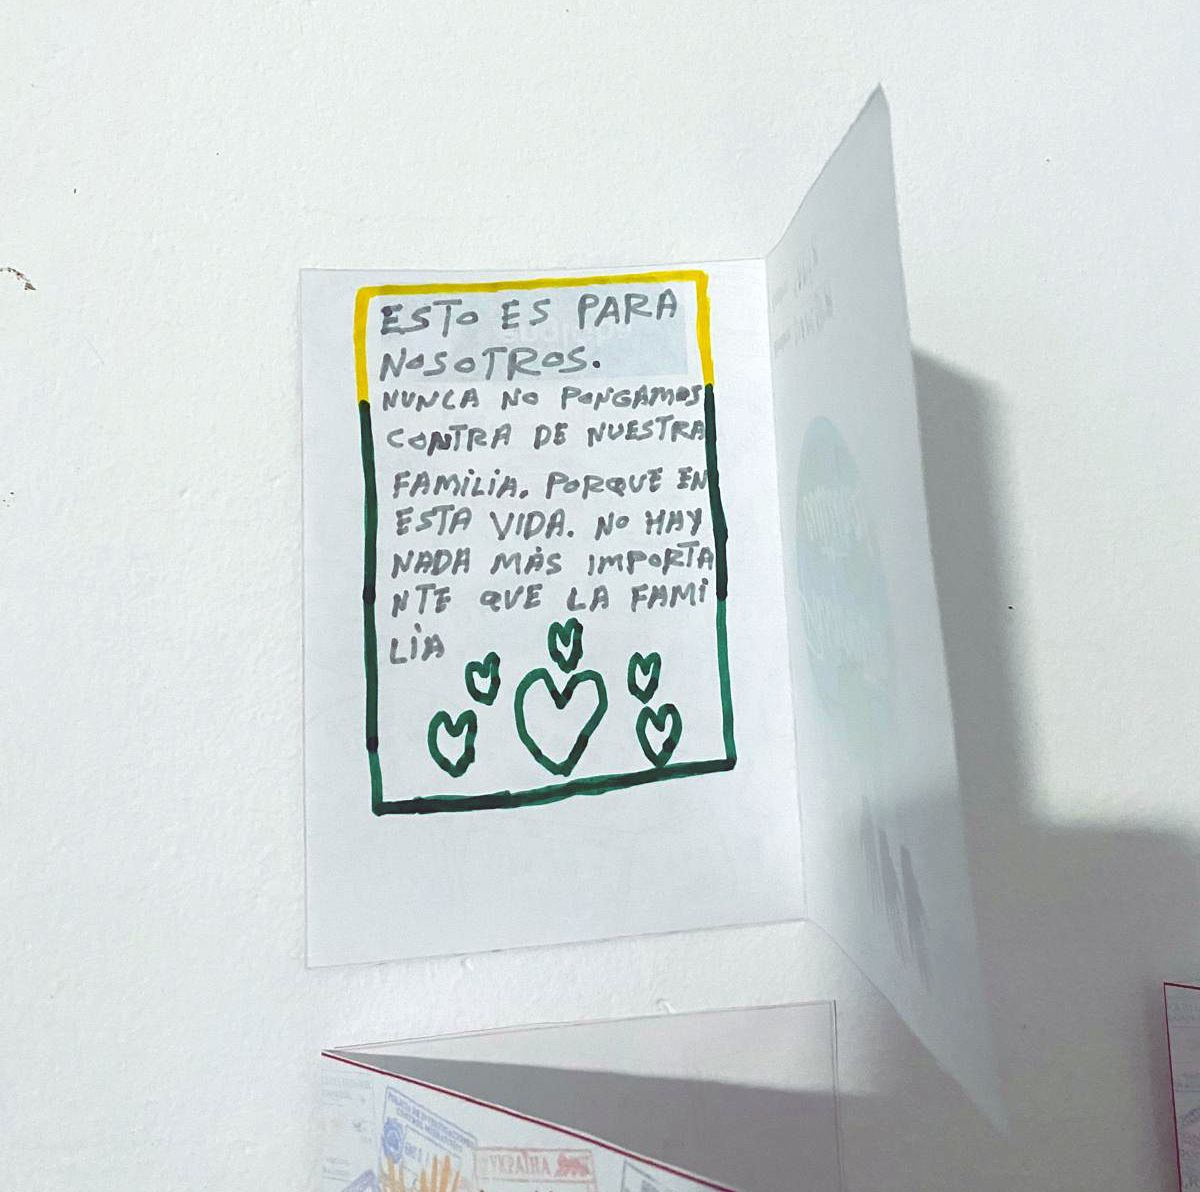 ESTO ES PARA
NOSOTROS.
NUNCA NO PONGAMOS
CONTRA DE NUESTRA
FAMILIA. PORQUE EN
ESTA VIDA. NO HAY
NADA MÁS IMPORTA
NTE QUE LA FAMI
LIA